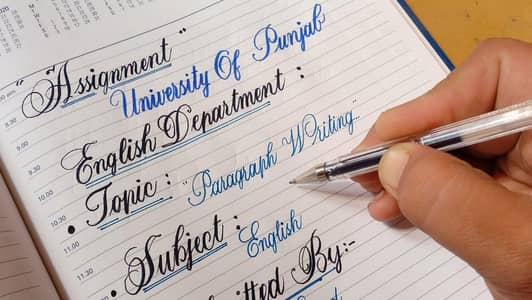 "Assignment"
University Of Punjab
English Department :
• Topic : "Paragraph Writing"
• Subject : English
By:-
8.30
9.00
9.30
10.00
10.30
11.00
11.30